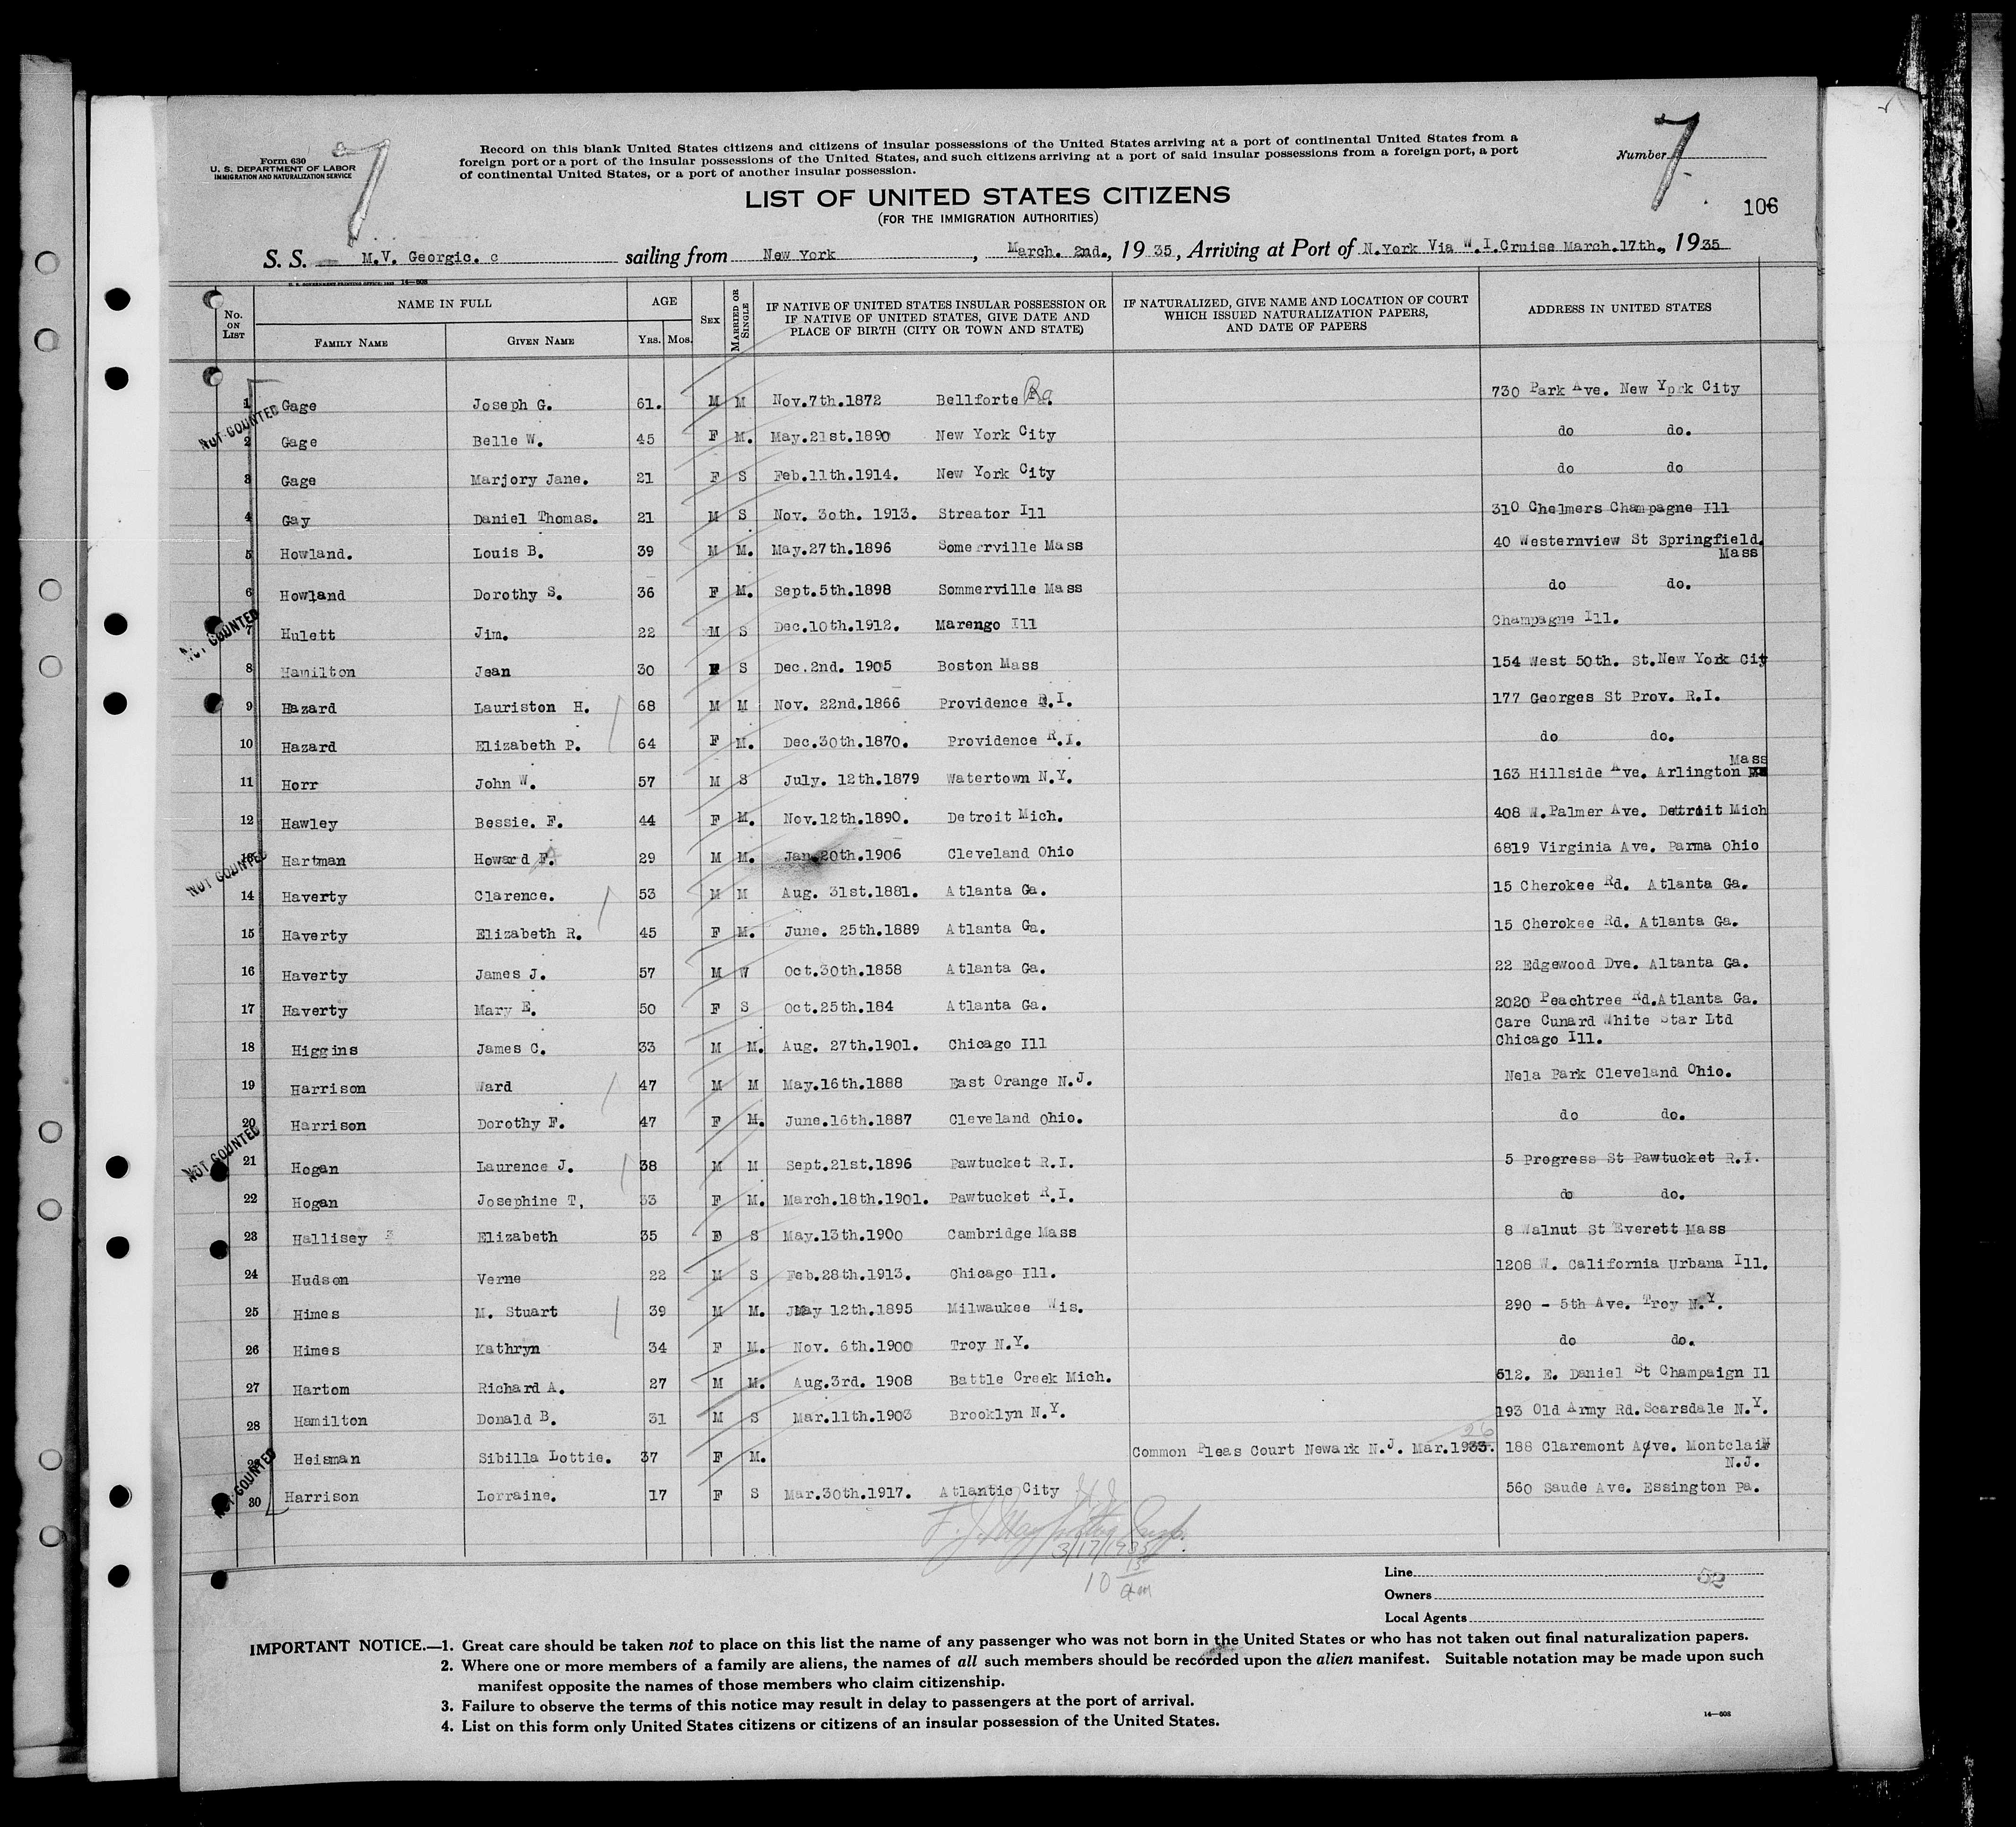 Form 630
U. S. DEPARTMENT OF LABOR
IMMIGRATION AND NATURALIZATION SERVICE
7
Record on this blank United States citizens and citizens of insular possessions of the United States arriving at a port of continental United States from a
foreign port or a port of the insular possessions of the United States, and such citizens arriving at a port of said insular possessions from a foreign port, a port
of continental United States, or a port of another insular possession.
Number 7
106
LIST OF UNITED STATES CITIZENS
(FOR THE IMMIGRATION AUTHORITIES)
S. S. M.V. Georgic. c sailing from New York, March. 2nd., 19 35, Arriving at Port of N.York Via W.I.Cruise March.17th., 19 35
U. S. GOVERNMENT PRINTING OFFICE: 14—608
No. ON LIST NAME IN FULL FAMILY NAME GIVEN NAME AGE YRS. MOS. SEX MARRIED OR SINGLE IF NATIVE OF UNITED STATES INSULAR POSSESSION OR IF NATIVE OF UNITED STATES, GIVE DATE AND PLACE OF BIRTH (CITY OR TOWN AND STATE) IF NATURALIZED, GIVE NAME AND LOCATION OF COURT WHICH ISSUED NATURALIZATION PAPERS, AND DATE OF PAPERS ADDRESS IN UNITED STATES
1 Gage Joseph G. 61. M M Nov.7th.1872 Bellforte Pa. 730 Park Ave. New York City
NOT COUNTED
2 Gage Belle W. 45 F M. May.21st.1890 New York City do do.
3 Gage Marjory Jane. 21 F S Feb.11th.1914. New York City do do
4 Gay Daniel Thomas. 21 M S Nov. 30th. 1913. Streator Ill 310 Chelmers Champagne Ill
5 Howland. Louis B. 39 M M. May.27th.1896 Somerrville Mass 40 Westernview St Springfield. Mass
6 Howland Dorothy S. 36 F M. Sept.5th.1898 Sommerville Mass do do.
NOT COUNTED
7 Hulett Jim. 22 M S Dec.10th.1912. Marengo Ill Champagne Ill.
8 Hamilton Jean 30 F S Dec.2nd. 1905 Boston Mass 154 West 50th. St.New York Cit
9 Hazard Lauriston H. 68 M M Nov. 22nd.1866 Providence R.I. 177 Georges St Prov. R.I.
10 Hazard Elizabeth P. 64 F M. Dec.30th.1870. Providence R.I. do do.
11 Horr John W. 57 M S July. 12th.1879 Watertown N.Y. 163 Hillside Ave. Arlington Mass
12 Hawley Bessie. F. 44 F M. Nov.12th.1890. Detroit Mich. 408 W.Palmer Ave. Detroit Mich
NOT COUNTED
13 Hartman Howard F. 29 M M. Jan.20th.1906 Cleveland Ohio 6819 Virginia Ave. Parma Ohio
14 Haverty Clarence. 53 M M Aug. 31st.1881. Atlanta Ga. 15 Cherokee Rd. Atlanta Ga.
15 Haverty Elizabeth R. 45 F M. June. 25th.1889 Atlanta Ga. 15 Cherokee Rd. Atlanta Ga.
16 Haverty James J. 57 M W Oct.30th.1858 Atlanta Ga. 22 Edgewood Dve. Altanta Ga.
17 Haverty Mary E. 50 F S Oct.25th.184 Atlanta Ga. 2020 Peachtree Rd.Atlanta Ga.
18 Higgins James C. 33 M M. Aug. 27th.1901. Chicago Ill Care Cunard White Star Ltd Chicago Ill.
19 Harrison Ward 47 M M May.16th.1888 East Orange N.J. Nela Park Cleveland Ohio.
20 Harrison Dorothy F. 47 F M. June.16th.1887 Cleveland Ohio. do do.
NOT COUNTED
21 Hogan Laurence J. 38 M M Sept.21st.1896 Pawtucket R.I. 5 Progress St Pawtucket R.I.
22 Hogan Josephine T, 33 F M. March.18th.1901. Pawtucket R.I. do do.
23 Hallisey Elizabeth 35 F S May.13th.1900 Cambridge Mass 8 Walnut St Everett Mass
24 Hudson Verne 22 M S Feb.28th.1913. Chicago Ill. 1208 W. California Urbana Ill.
25 Himes M. Stuart 39 M M. May 12th.1895 Milwaukee Wis. 290 - 5th Ave. Troy N.Y.
26 Himes Kathryn 34 F M. Nov. 6th.1900 Troy N.Y. do do.
27 Hartom Richard A. 27 M M. Aug.3rd. 1908 Battle Creek Mich. 512. E. Daniel St Champaign Il
28 Hamilton Donald B. 31 M S Mar.11th.1903 Brooklyn N.Y. 193 Old Army Rd.Scarsdale N.Y.
29 Heisman Sibilla Lottie. 37 F M. Common Pleas Court Newark N.J. Mar.1933. 26 188 Claremont Ave. Montclair N.J.
NOT COUNTED
30 Harrison Lorraine. 17 F S Mar.30th.1917. Atlantic City 560 Saude Ave. Essington Pa.
3/17/1935
10 15 am
Line 52
Owners
Local Agents
IMPORTANT NOTICE.—1. Great care should be taken not to place on this list the name of any passenger who was not born in the United States or who has not taken out final naturalization papers.
2. Where one or more members of a family are aliens, the names of all such members should be recorded upon the alien manifest. Suitable notation may be made upon such
manifest opposite the names of those members who claim citizenship.
3. Failure to observe the terms of this notice may result in delay to passengers at the port of arrival.
4. List on this form only United States citizens or citizens of an insular possession of the United States.
14—608